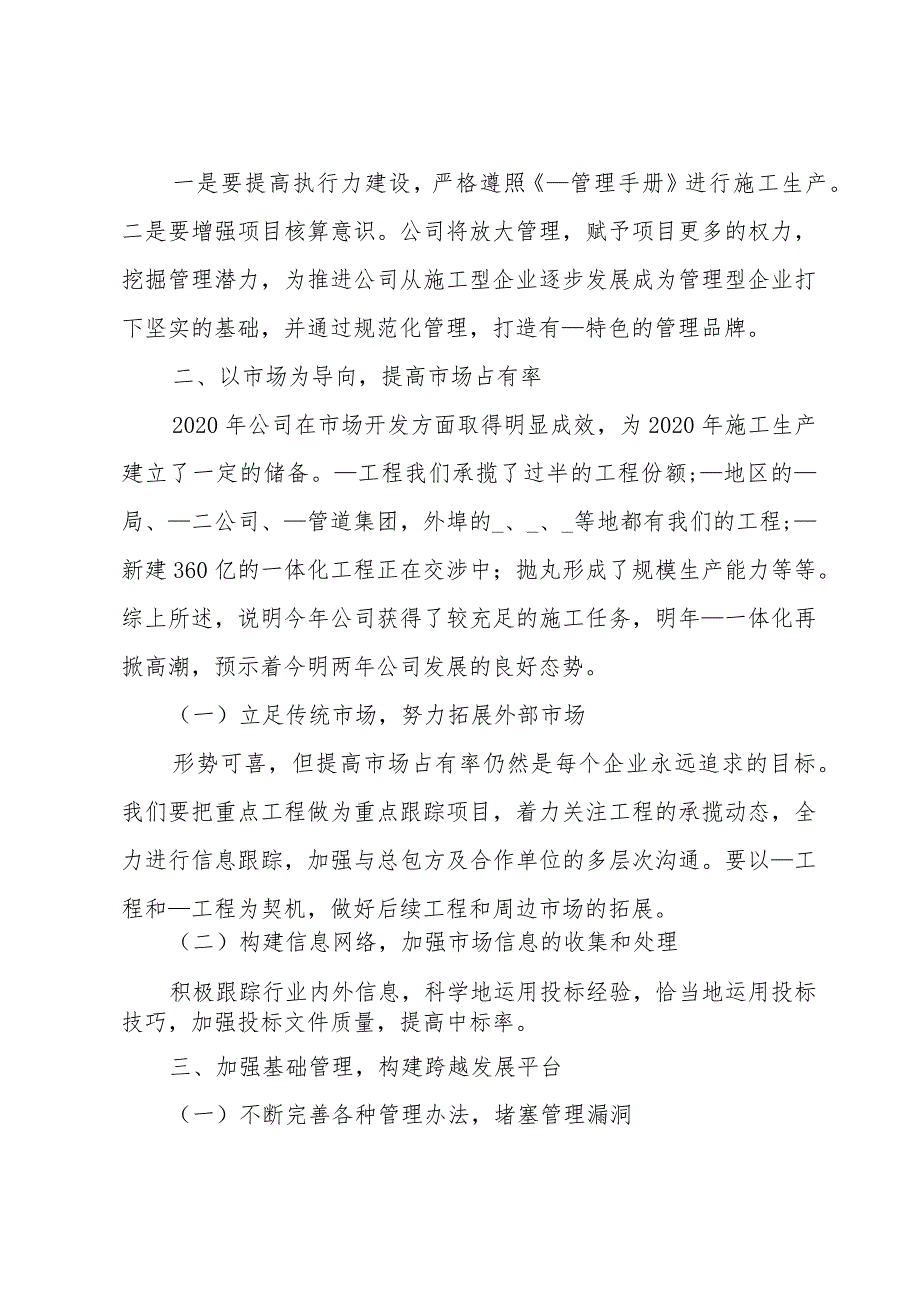 一是要提高执行力建设，严格遵照《—管理手册》进行施工生产。
二是要增强项目核算意识。公司将放大管理，赋予项目更多的权力，
挖掘管理潜力，为推进公司从施工型企业逐步发展成为管理型企业打
下坚实的基础，并通过规范化管理，打造有—特色的管理品牌。
二、以市场为导向，提高市场占有率
2020 年公司在市场开发方面取得明显成效，为 2020 年施工生产
建立了一定的储备。—工程我们承揽了过半的工程份额;—地区的—
局、—二公司、—管道集团，外埠的_、_、_等地都有我们的工程;—
新建 360 亿的一体化工程正在交涉中；抛丸形成了规模生产能力等等。
综上所述，说明今年公司获得了较充足的施工任务，明年—一体化再
掀高潮，预示着今明两年公司发展的良好态势。
（一）立足传统市场，努力拓展外部市场
形势可喜，但提高市场占有率仍然是每个企业永远追求的目标。
我们要把重点工程做为重点跟踪项目，着力关注工程的承揽动态，全
力进行信息跟踪，加强与总包方及合作单位的多层次沟通。要以—工
程和—工程为契机，做好后续工程和周边市场的拓展。
（二）构建信息网络，加强市场信息的收集和处理
积极跟踪行业内外信息，科学地运用投标经验，恰当地运用投标
技巧，加强投标文件质量，提高中标率。
三、加强基础管理，构建跨越发展平台
（一）不断完善各种管理办法，堵塞管理漏洞